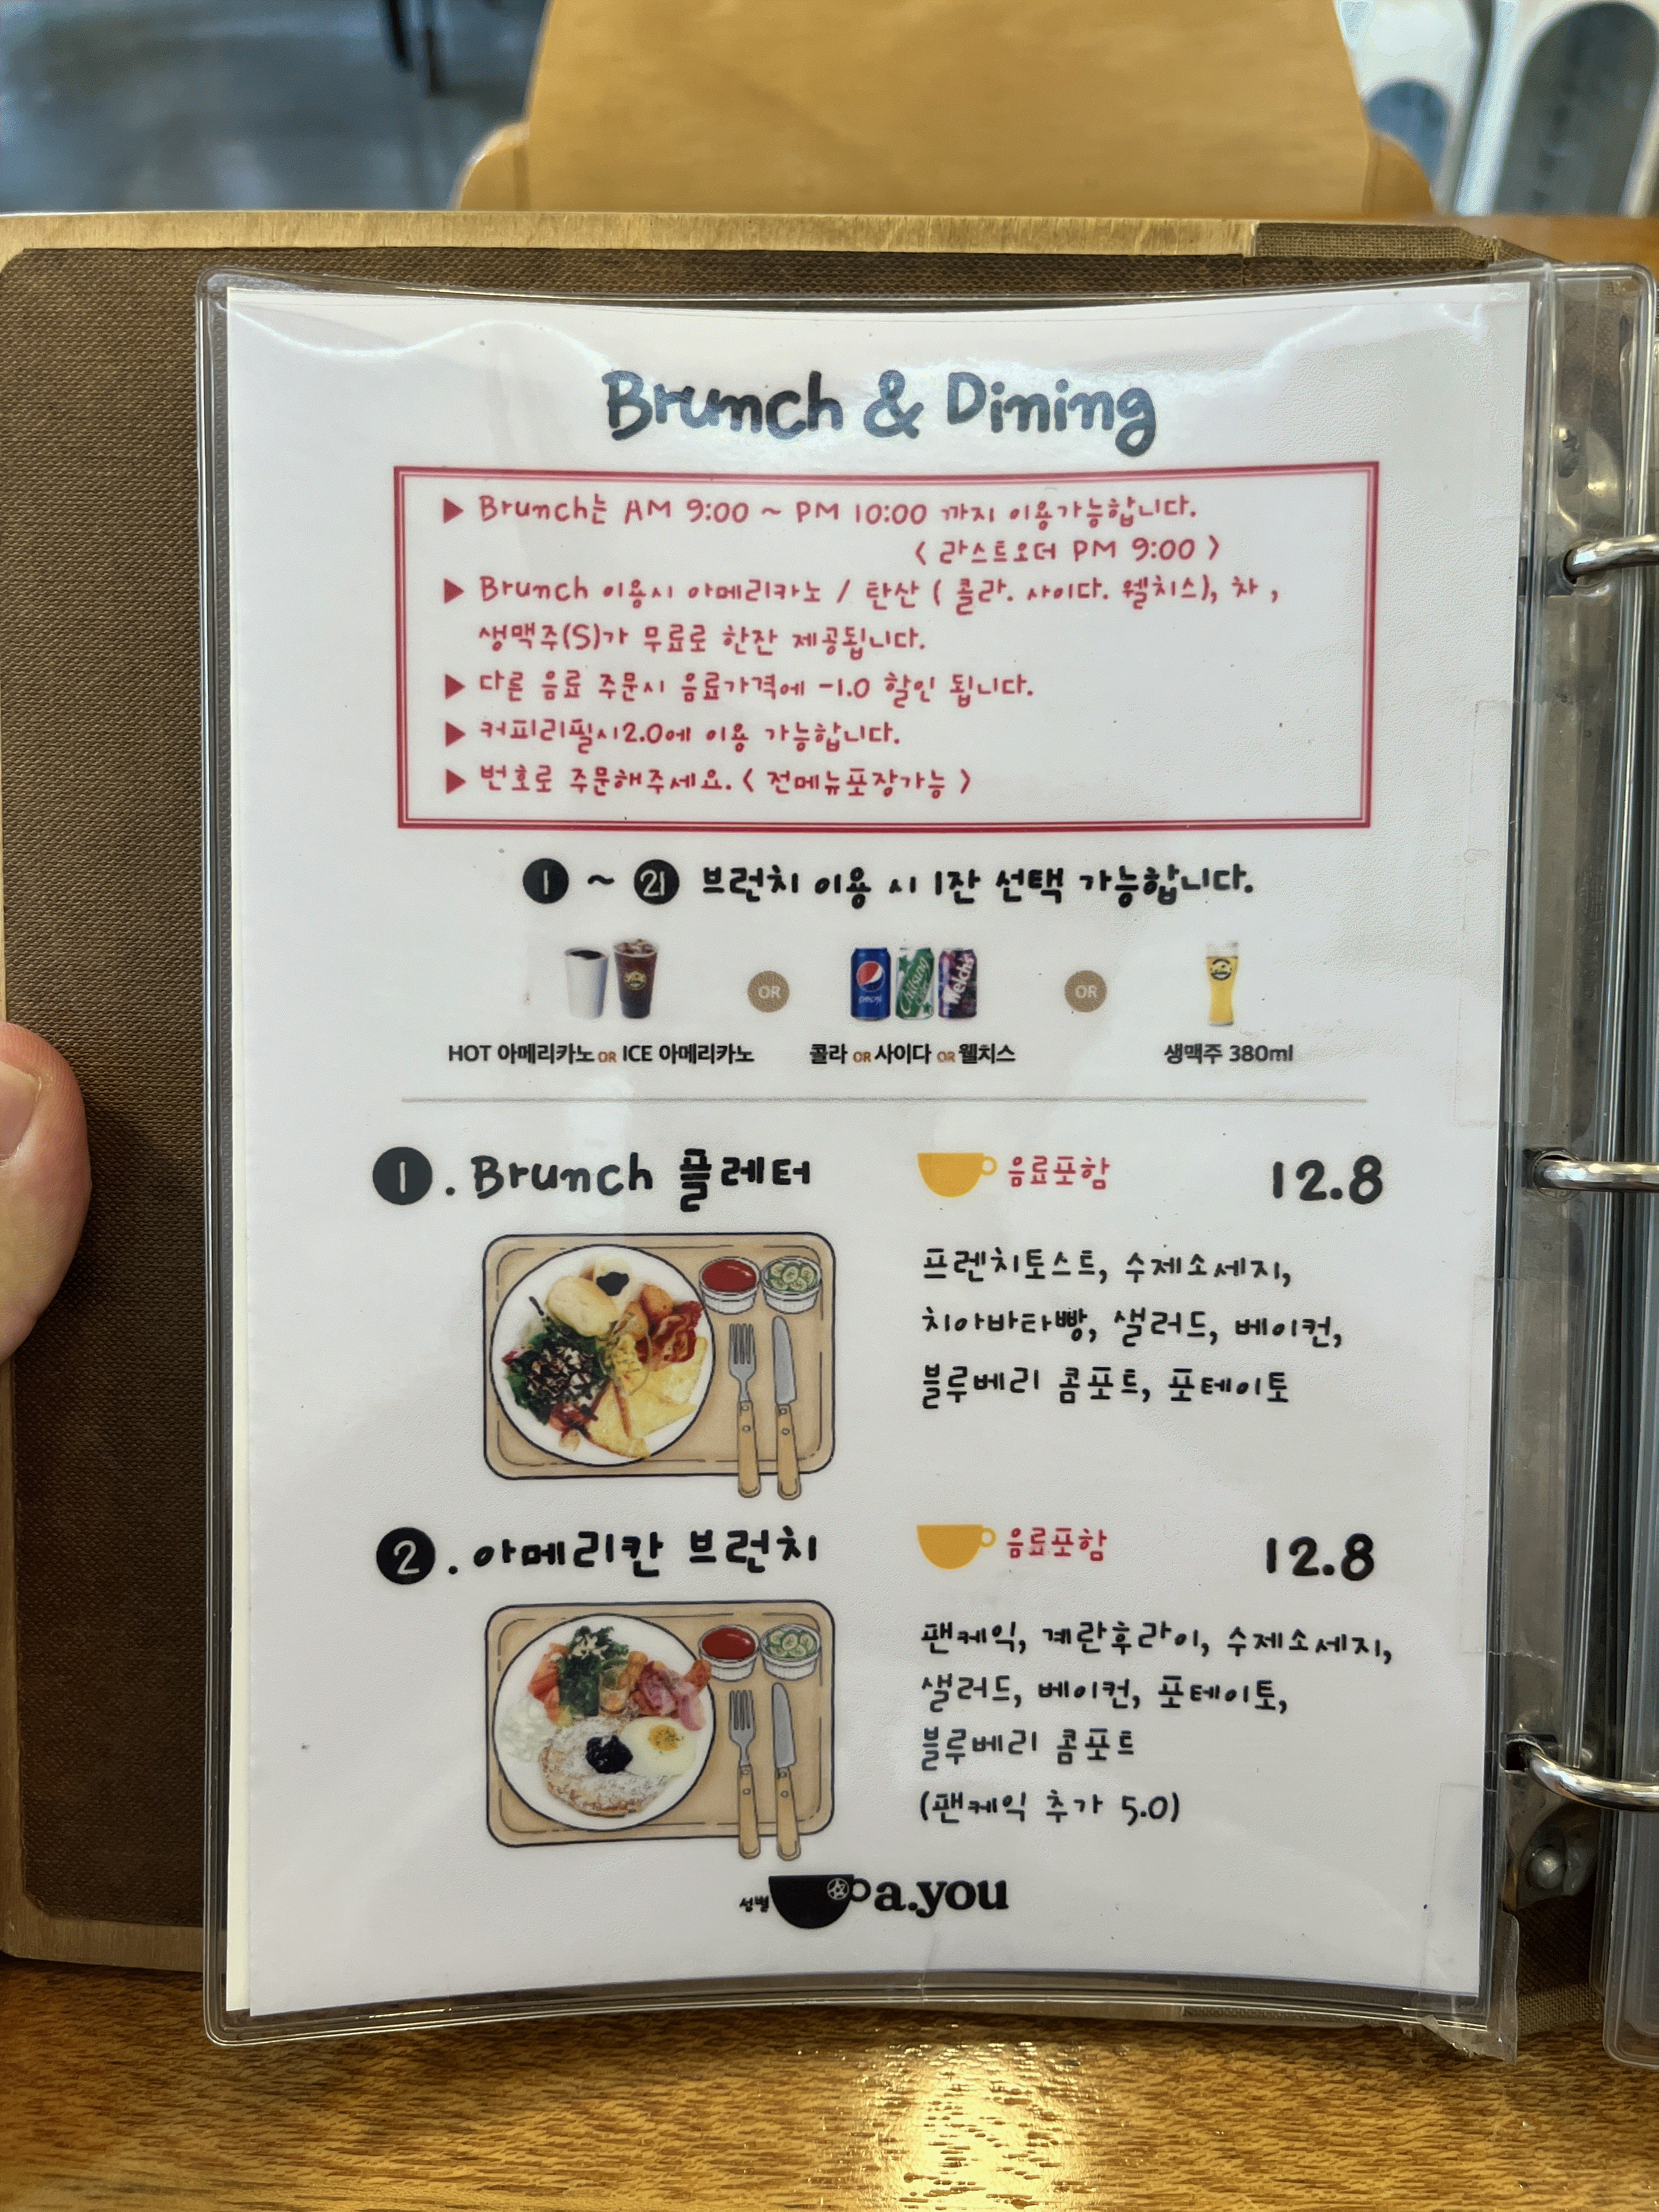 Brunch & Dining
▶ Brunch는 AM 9:00 ~ PM 10:00 까지 이용가능합니다.
< 라스트오더 PM 9:00 >
▶ Brunch 이용시 아메리카노 / 탄산 ( 콜라. 사이다. 웰치스), 차 ,
생맥주(S)가 무료로 한잔 제공됩니다.
▶ 다른 음료 주문시 음료가격에 -1.0 할인 됩니다.
▶ 커피리필시2.0에 이용 가능합니다.
▶ 번호로 주문해주세요. < 전메뉴포장가능 >
1 ~ 21 브런치 이용 시 1잔 선택 가능합니다.
OR pepsi Chilsung Welch's OR
HOT 아메리카노 OR ICE 아메리카노 콜라 OR 사이다 OR 웰치스 생맥주 380ml
1 . Brunch 플레터 음료포함 12.8
프렌치토스트, 수제소세지,
치아바타빵, 샐러드, 베이컨,
블루베리 콤포트, 포테이토
2 . 아메리칸 브런치 음료포함 12.8
팬케익, 계란후라이, 수제소세지,
샐러드, 베이컨, 포테이토,
블루베리 콤포트
(팬케익 추가 5.0)
성별 a.you